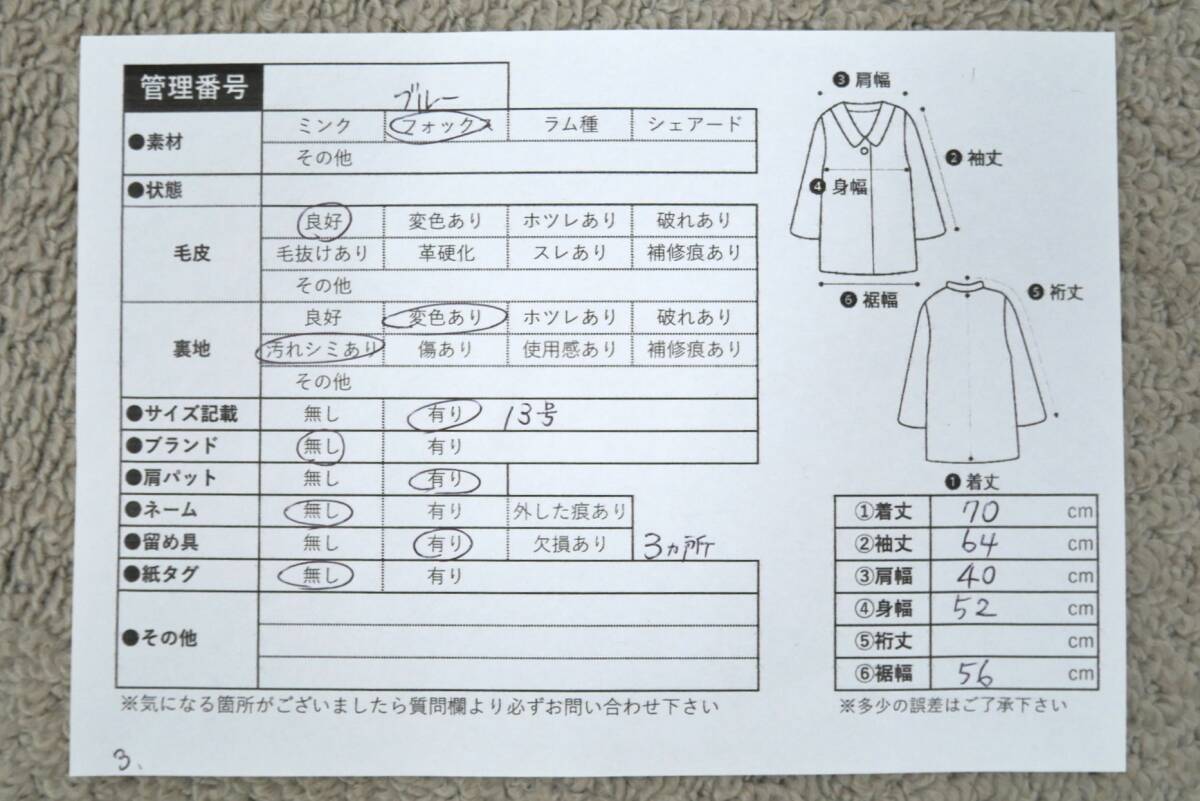 管理番号
ブルー
●素材 ミンク フォックス ラム種 シェアード
その他
●状態
毛皮 良好 変色あり ホツレあり 破れあり
毛抜けあり 革硬化 スレあり 補修痕あり
その他
裏地 良好 変色あり ホツレあり 破れあり
汚れシミあり 傷あり 使用感あり 補修痕あり
その他
●サイズ記載 無し 有り 13号
●ブランド 無し 有り
●肩パット 無し 有り
●ネーム 無し 有り 外した痕あり
●留め具 無し 有り 欠損あり 3ヵ所
●紙タグ 無し 有り
●その他
※気になる箇所がございましたら質問欄より必ずお問い合わせ下さい
3、
❸肩幅
❷袖丈
❹身幅
❻裾幅
❺裄丈
❶着丈
①着丈 70 cm
②袖丈 64 cm
③肩幅 40 cm
④身幅 52 cm
⑤裄丈 cm
⑥裾幅 56 cm
※多少の誤差はご了承下さい